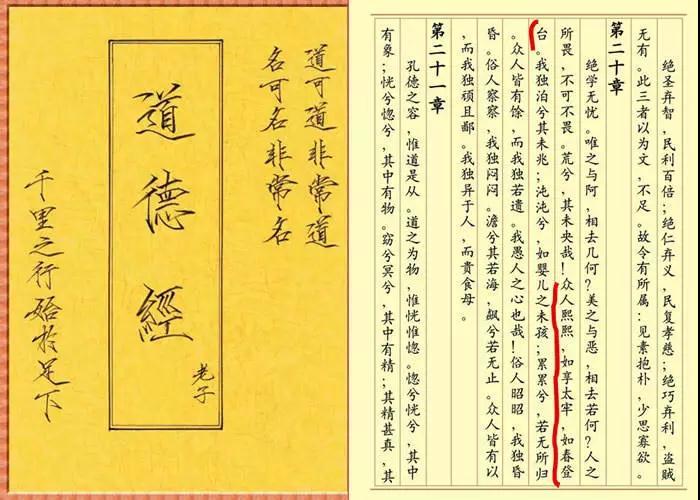 道可道非常道
名可名非常名
道德經
老子
千里之行始於足下
绝圣弃智，民利百倍；绝仁弃义，民复孝慈；绝巧弃利，盗贼
无有。此三者以为文，不足。故令有所属：见素抱朴，少思寡欲。
第二十章
绝学无忧。唯之与阿，相去几何？美之与恶，相去若何？人之
所畏，不可不畏。荒兮，其未央哉！众人熙熙，如享太牢，如春登
台。我独泊兮其未兆；沌沌兮，如婴儿之未孩；累累兮，若无所归
。众人皆有馀，而我独若遗。我愚人之心也哉！俗人昭昭，我独昏
昏。俗人察察，我独闷闷。澹兮其若海，飙兮若无止。众人皆有以
，而我独顽且鄙。我独异于人，而贵食母。
第二十一章
孔德之容，惟道是从。道之为物，惟恍惟惚。惚兮恍兮，其中
有象；恍兮惚兮，其中有物。窈兮冥兮，其中有精；其精甚真，其